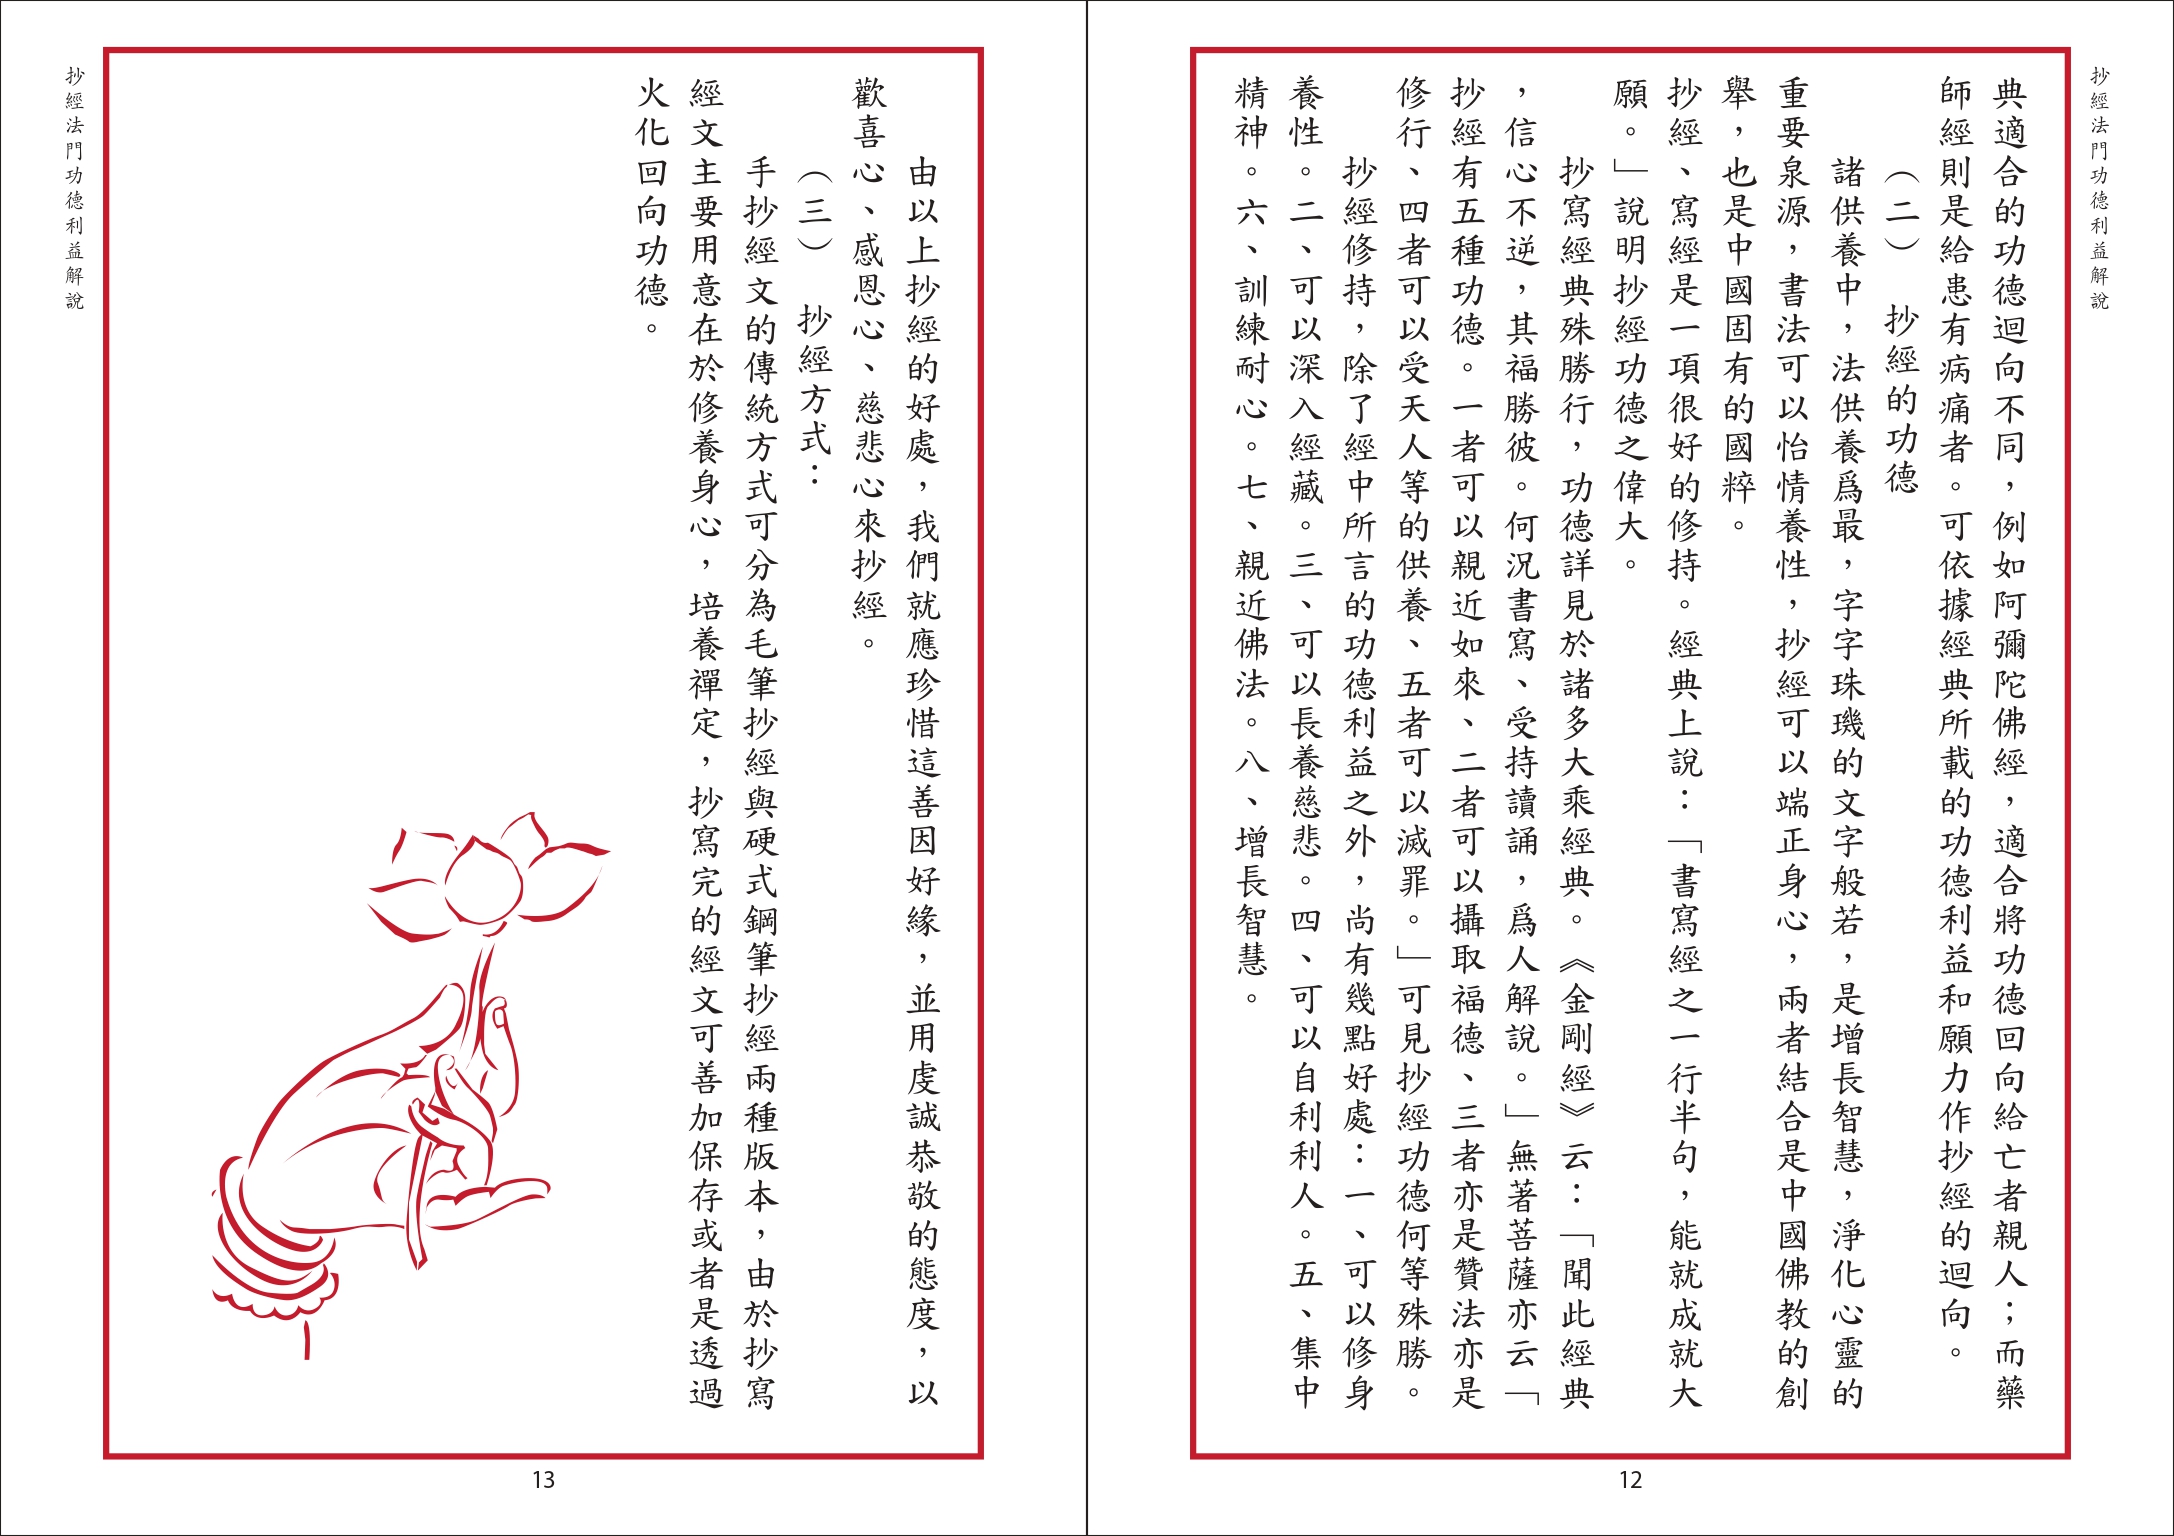 抄經法門功德利益解說
典適合的功德迴向不同，例如阿彌陀佛經，適合將功德回向給亡者親人；而藥
師經則是給患有病痛者。可依據經典所載的功德利益和願力作抄經的迴向。
（二）　抄經的功德
諸供養中，法供養爲最，字字珠璣的文字般若，是增長智慧，淨化心靈的
重要泉源，書法可以怡情養性，抄經可以端正身心，兩者結合是中國佛教的創
舉，也是中國固有的國粹。
抄經、寫經是一項很好的修持。經典上說：「書寫經之一行半句，能就成就大
願。」說明抄經功德之偉大。
抄寫經典殊勝行，功德詳見於諸多大乘經典。《金剛經》云：「聞此經典
，信心不逆，其福勝彼。何況書寫、受持讀誦，爲人解說。」無著菩薩亦云「
抄經有五種功德。一者可以親近如來、二者可以攝取福德、三者亦是贊法亦是
修行、四者可以受天人等的供養、五者可以滅罪。」可見抄經功德何等殊勝。
抄經修持，除了經中所言的功德利益之外，尚有幾點好處：一、可以修身
養性。二、可以深入經藏。三、可以長養慈悲。四、可以自利利人。五、集中
精神。六、訓練耐心。七、親近佛法。八、增長智慧。
12
由以上抄經的好處，我們就應珍惜這善因好緣，並用虔誠恭敬的態度，以
歡喜心、感恩心、慈悲心來抄經。
（三）　抄經方式：
手抄經文的傳統方式可分為毛筆抄經與硬式鋼筆抄經兩種版本，由於抄寫
經文主要用意在於修養身心，培養禪定，抄寫完的經文可善加保存或者是透過
火化回向功德。
抄經法門功德利益解說
13